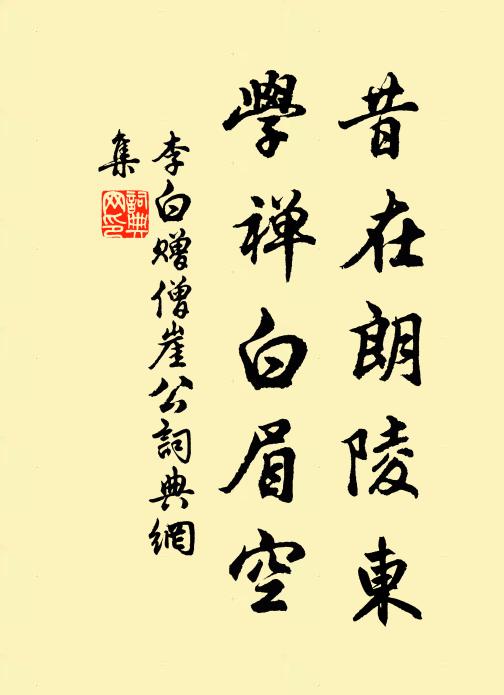 昔在朗陵東
學禅白眉空
李白贈僧崖公詞典網
集
詞典
网印